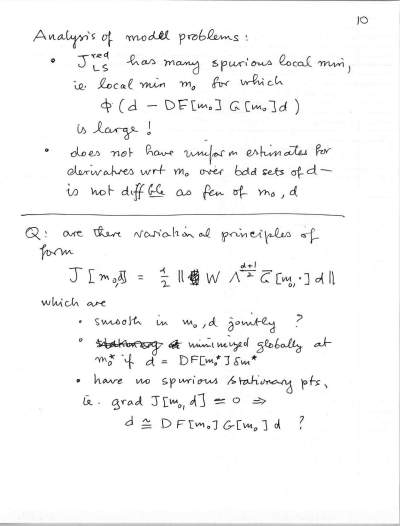 10
Analysis of model problems:
• J_LS^red has many spurious local min,
ie. local min m₀ for which
Φ(d − DF[m₀] G[m₀]d)
is large!
• does not have uniform estimates for
derivatives wrt m₀ over bdd sets of d —
is not diffble as fcn of m₀, d
Q: are there variational principles of
form
J[m₀,d] = ½ ‖ W Λ^{(d+1)/2} G̅[m₀,·]d‖
which are
• smooth in m₀, d jointly ?
• stationary at minimized globally at
m₀* if d = DF[m₀*]δm*
• have no spurious stationary pts,
ie. grad J[m₀,d] = 0 ⇒
d ≅ DF[m₀]G[m₀]d ?